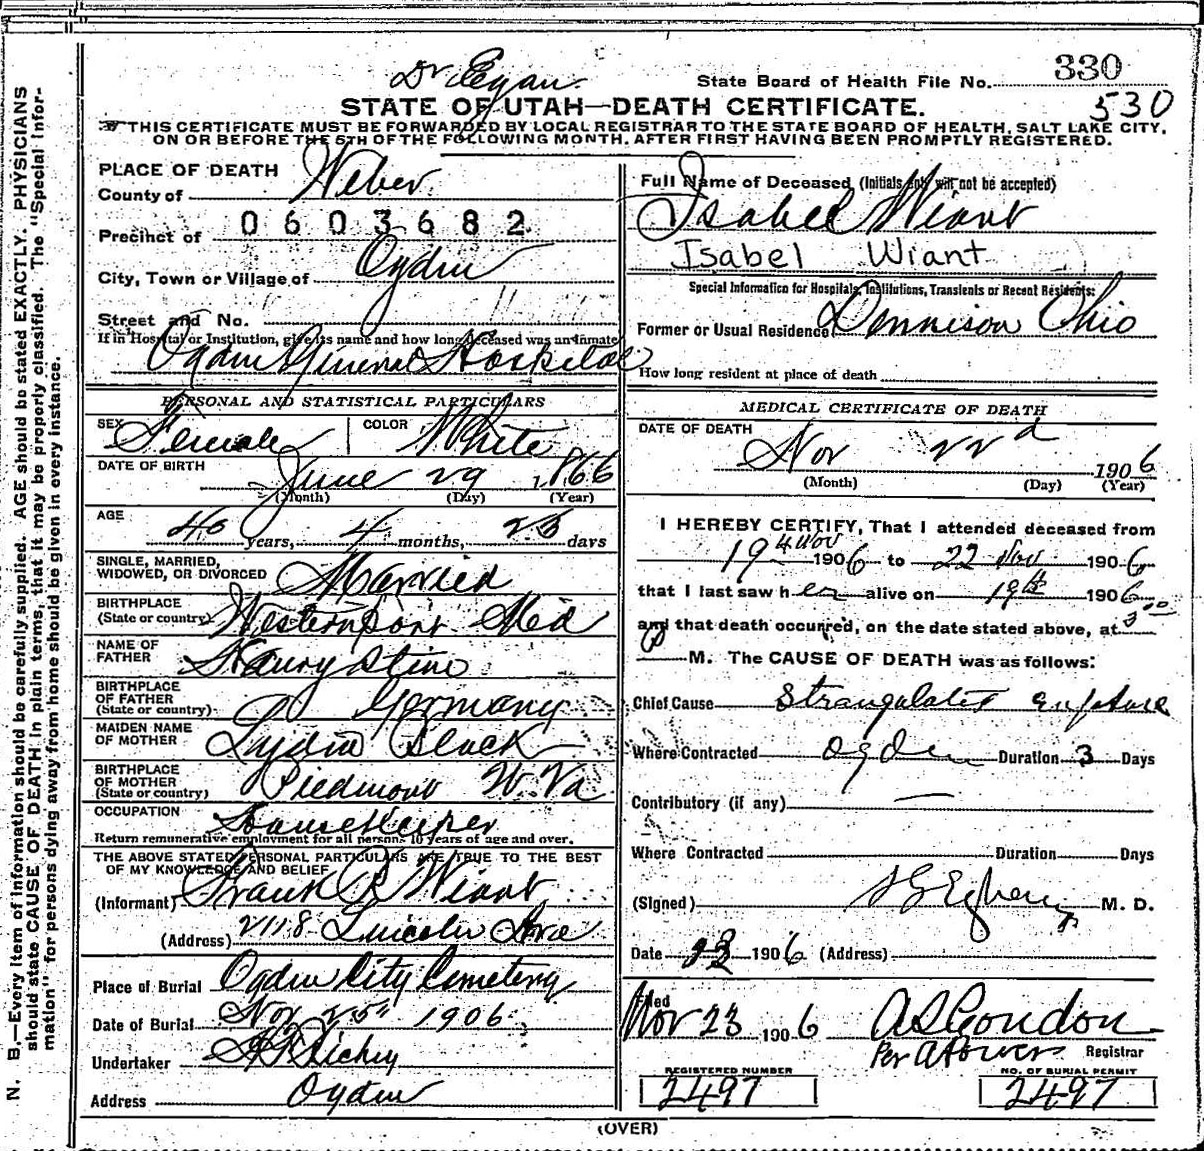 Dr Egan
State Board of Health File No. 330
530
STATE OF UTAH—DEATH CERTIFICATE.
THIS CERTIFICATE MUST BE FORWARDED BY LOCAL REGISTRAR TO THE STATE BOARD OF HEALTH, SALT LAKE CITY,
ON OR BEFORE THE 5TH OF THE FOLLOWING MONTH, AFTER FIRST HAVING BEEN PROMPTLY REGISTERED.
PLACE OF DEATH
County of Weber
Precinct of 0603682
City, Town or Village of Ogden
Street and No.
If in Hospital or Institution, give its name and how long deceased was an inmate
Ogden General Hospital
PERSONAL AND STATISTICAL PARTICULARS
SEX Female COLOR White
DATE OF BIRTH June 29 1866
(Month) (Day) (Year)
AGE 40 years, 4 months, 23 days
SINGLE, MARRIED,
WIDOWED, OR DIVORCED Married
BIRTHPLACE
(State or country) Westernport Md
NAME OF
FATHER Haury Stine
BIRTHPLACE
OF FATHER
(State or country) Germany
MAIDEN NAME
OF MOTHER Lydia Black
BIRTHPLACE
OF MOTHER
(State or country) Piedmont W. Va
OCCUPATION HouseKeeper
Return remunerative employment for all persons 10 years of age and over.
THE ABOVE STATED PERSONAL PARTICULARS ARE TRUE TO THE BEST
OF MY KNOWLEDGE AND BELIEF
(Informant) Frank R Wiant
(Address) 2118 Lincoln Ave
Place of Burial Ogden City Cemetery
Date of Burial Nov 25 1906
Undertaker Richey
Address Ogden
Full Name of Deceased (Initials only will not be accepted)
Isabel Wiant
Isabel Wiant
Special Information for Hospitals, Institutions, Transients or Recent Residents:
Former or Usual Residence Dennison Ohio
How long resident at place of death
MEDICAL CERTIFICATE OF DEATH
DATE OF DEATH
Nov 22d 1906
(Month) (Day) (Year)
I HEREBY CERTIFY, That I attended deceased from
19th Nov 1906 to 22 Nov 1906
that I last saw her alive on 19th 1906
and that death occurred, on the date stated above, at 3:00
P M. The CAUSE OF DEATH was as follows:
Chief Cause Strangulated
Where Contracted Ogden Duration 3 Days
Contributory (if any) —
Where Contracted Duration Days
(Signed) M. D.
Date 23 1906 (Address)
Filed
Nov 23 1906 A S Condon
Per A Powers Registrar
REGISTERED NUMBER NO. OF BURIAL PERMIT
2497 2497
(OVER)
N. B.—Every item of information should be carefully supplied. AGE should be stated EXACTLY. PHYSICIANS
should state CAUSE OF DEATH in plain terms, that it may be properly classified. The "Special Infor-
mation" for persons dying away from home should be given in every instance.